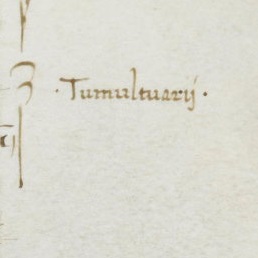 · Tumultuarij ·